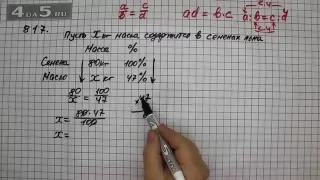 4DA5.RU
a/b = c/d
ad = b·c
a:b=c:d
к.ч
с.ч
817. Пусть X кг масла содержится в семенах льна
Масса %
Семена 80кг 100%
Масло X кг 47%
80/x = 100/47
x = 80·47/100
×47
x =